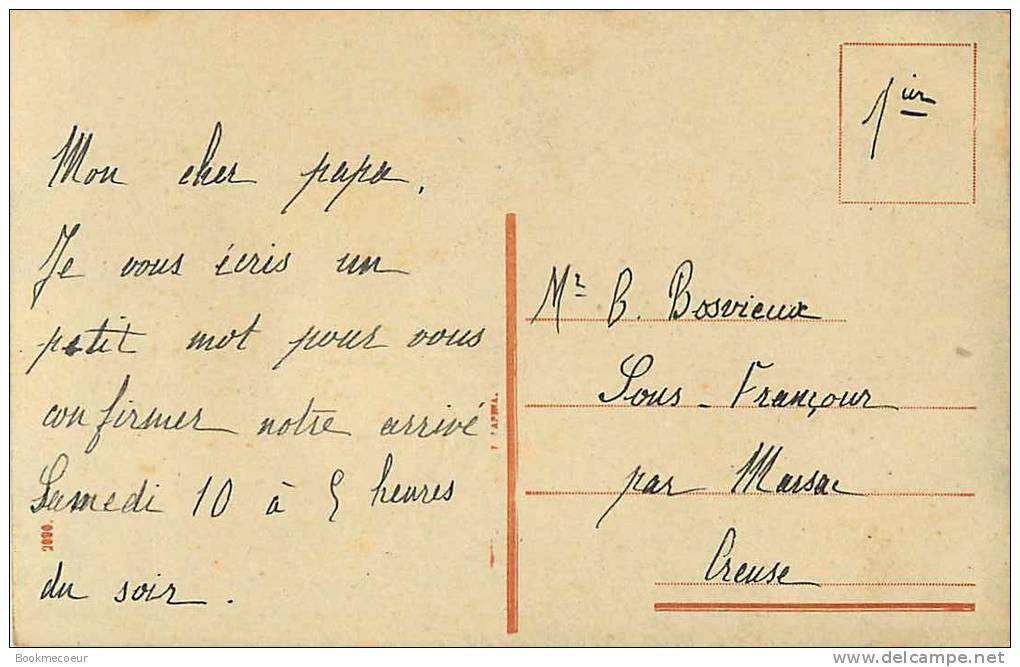 Mon cher papa,
Je vous écris un
petit mot pour vous
confirmer notre arrivé
Samedi 10 à 5 heures
du soir.
1ier
Mr B. Bosvieux
Sous-Françour
par Marsac
Creuse
2090.
Bookmecoeur
www.delcampe.net